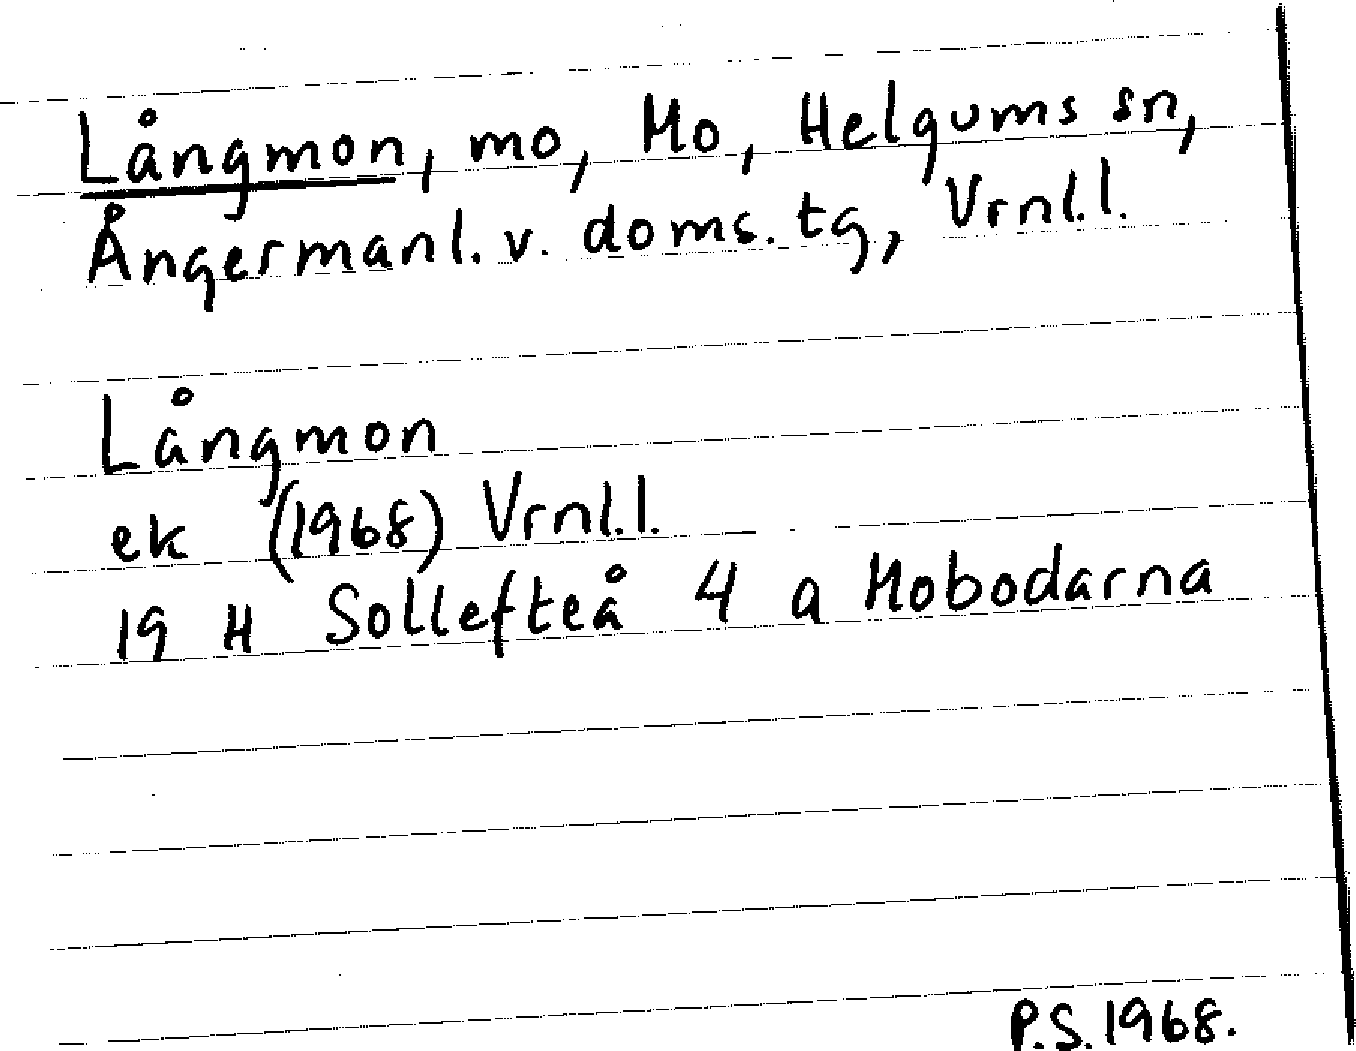 Långmon, mo, Mo, Helgums sn,
Ångermanl. v. doms. tg, Vrnl.l.
Långmon
ek (1968) Vrnl.l.
19 H Sollefteå 4 a Mobodarna
P.S. 1968.